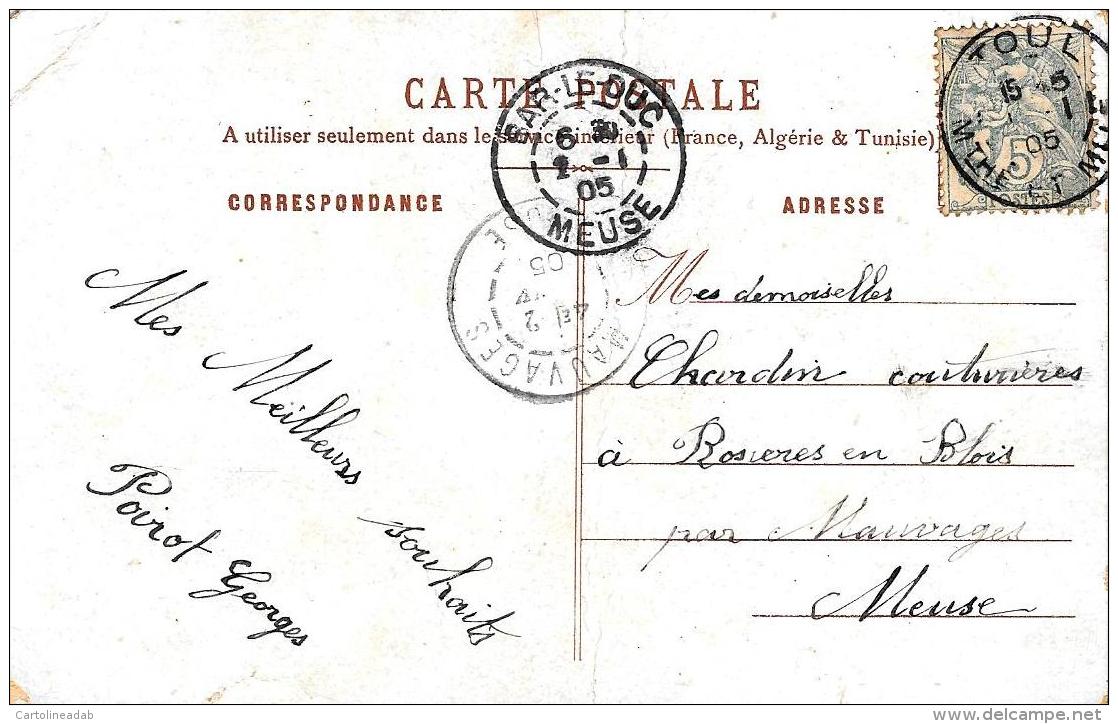 CARTE POSTALE
A utiliser seulement dans le service intérieur (France, Algérie & Tunisie)
CORRESPONDANCE
ADRESSE
TOUL
15
5
1
05
MTHE ET
5
BAR-LE-DUC
6 30
2 - 1
05
MEUSE
MAUVAGES
2
05
Mes Meilleurs souhaits
Poirot Georges
Mesdemoiselles
Chardin couturières
à Rosieres en Blois
par Mauvages
Meuse
Cartolineadab
delcampe.net